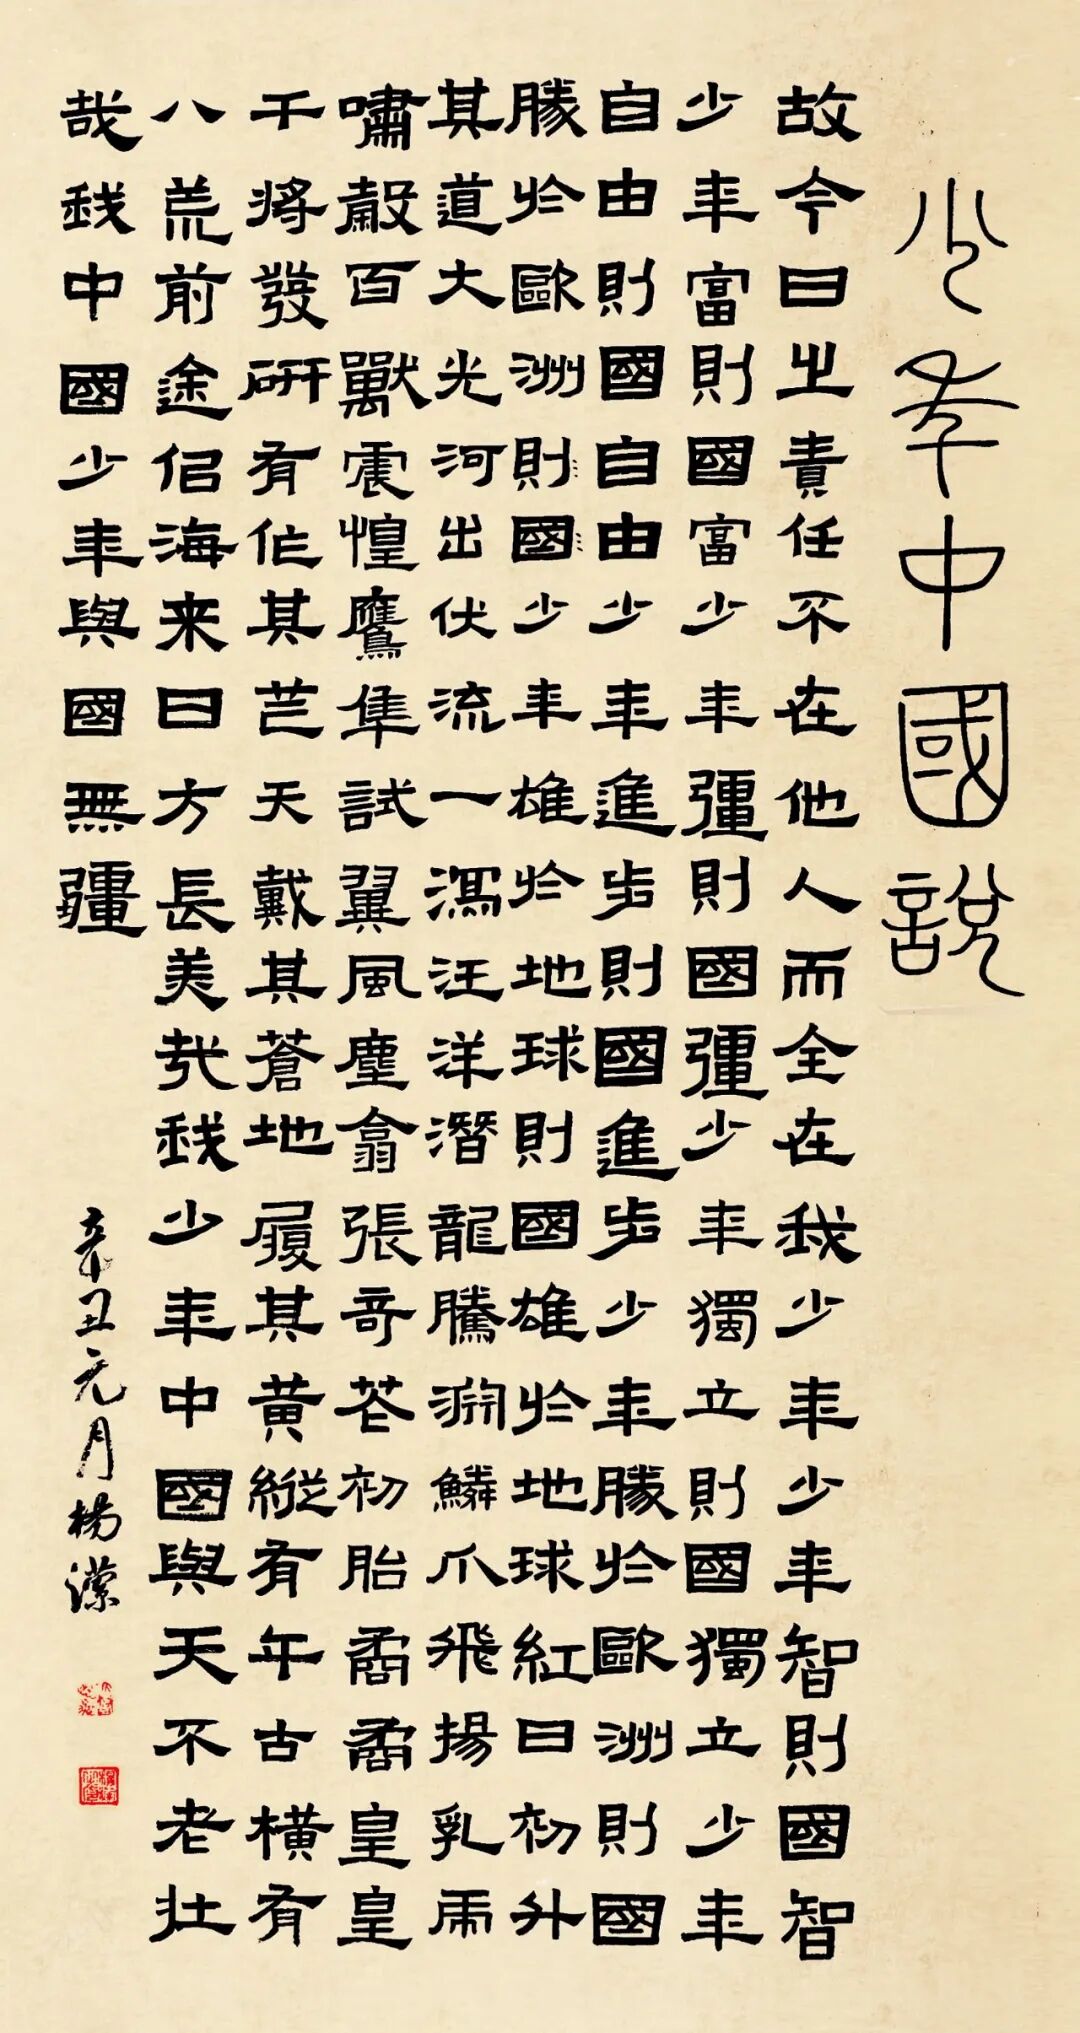 少年中國説
故今日之責任不在他人而全在我少年少年智則國智
少年富則國富少年彊則國彊少年獨立則國獨立少年
自由則國自由少年進步則國進步少年勝於歐洲則國
勝於歐洲則國少年雄於地球則國雄於地球紅日初升
其道大光河出伏流一瀉汪洋潛龍騰淵鱗爪飛揚乳虎
嘯穀百獸震惶鷹隼試翼風塵翕張奇花初胎矞矞皇皇
干將發硎有作其芒天戴其蒼地履其黄縱有千古横有
八荒前途佀海来日方長美哉我少年中國與天不老壮
哉我中國少年與國無疆
辛丑元月楊潔